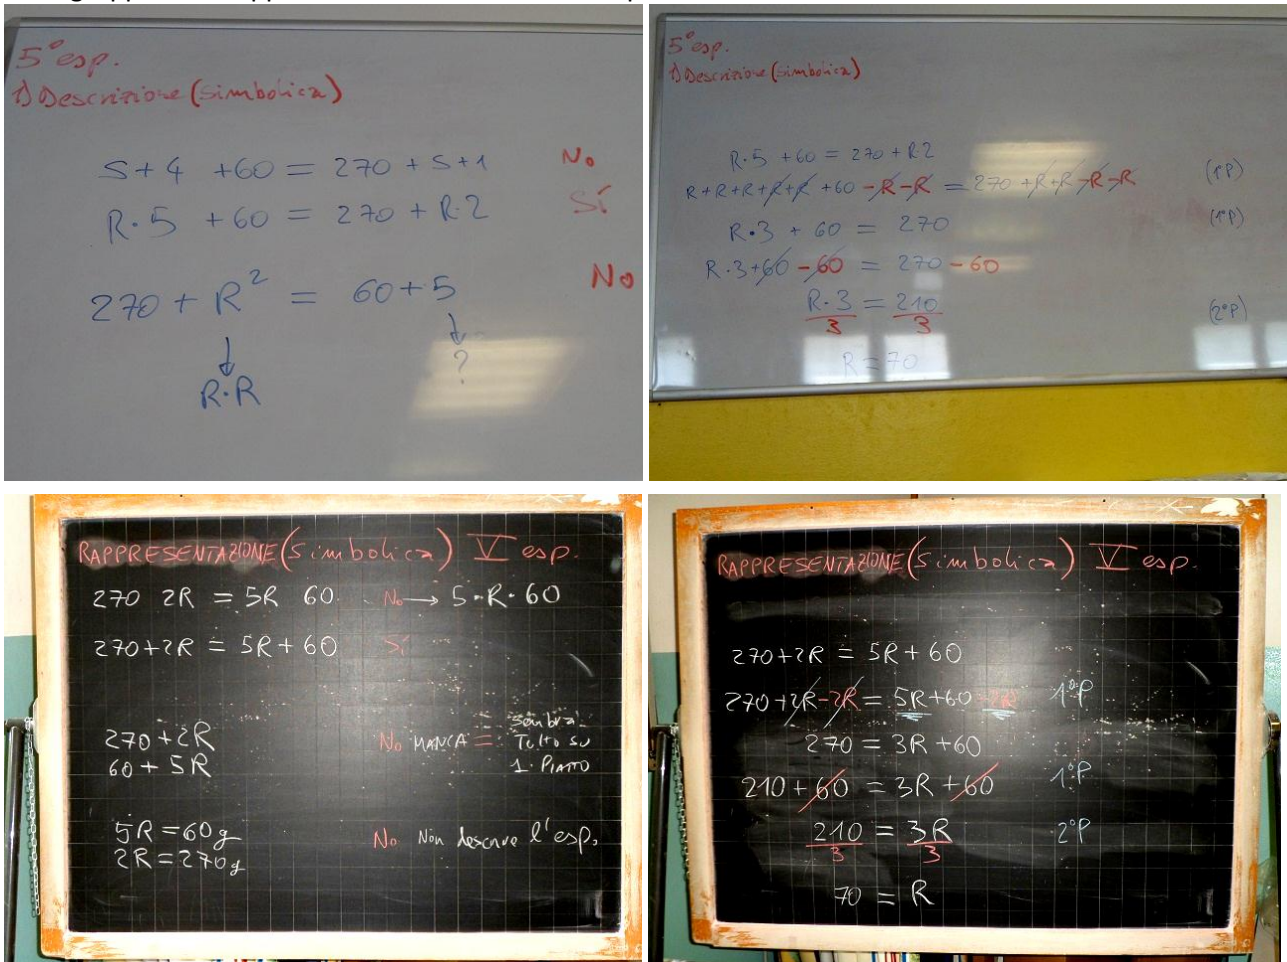 5° esp.
1) Descrizione (simbolica)
S+4 +60 = 270 + S+1 No
R·5 +60 = 270 + R·2 Sí
270 + R² = 60+5 No
?
R·R
5° esp.
1) Descrizione (simbolica)
R·5 +60 = 270 + R·2
R+R+R+R+R +60 -R-R = 270 +R+R -R-R (1°P)
R·3 + 60 = 270 (1°P)
R·3+60 -60 = 270 -60
R·3 = 210 (2°P)
3 3
R = 70
RAPPRESENTAZIONE (Simbolica) V esp.
270 2R = 5R 60 No → 5·R·60
270+2R = 5R+60 Sí
270+2R No MANCA = sembra
60+5R Tutto su
1 PIATTO
5R=60g No Non descrive l'esp.
2R=270g
RAPPRESENTAZIONE (Simbolica) V esp.
270+2R = 5R+60
270+2R-2R = 5R+60 -2R 1°P
270 = 3R+60
210+60 = 3R+60 1°P
210 = 3R 2°P
3 3
70 = R